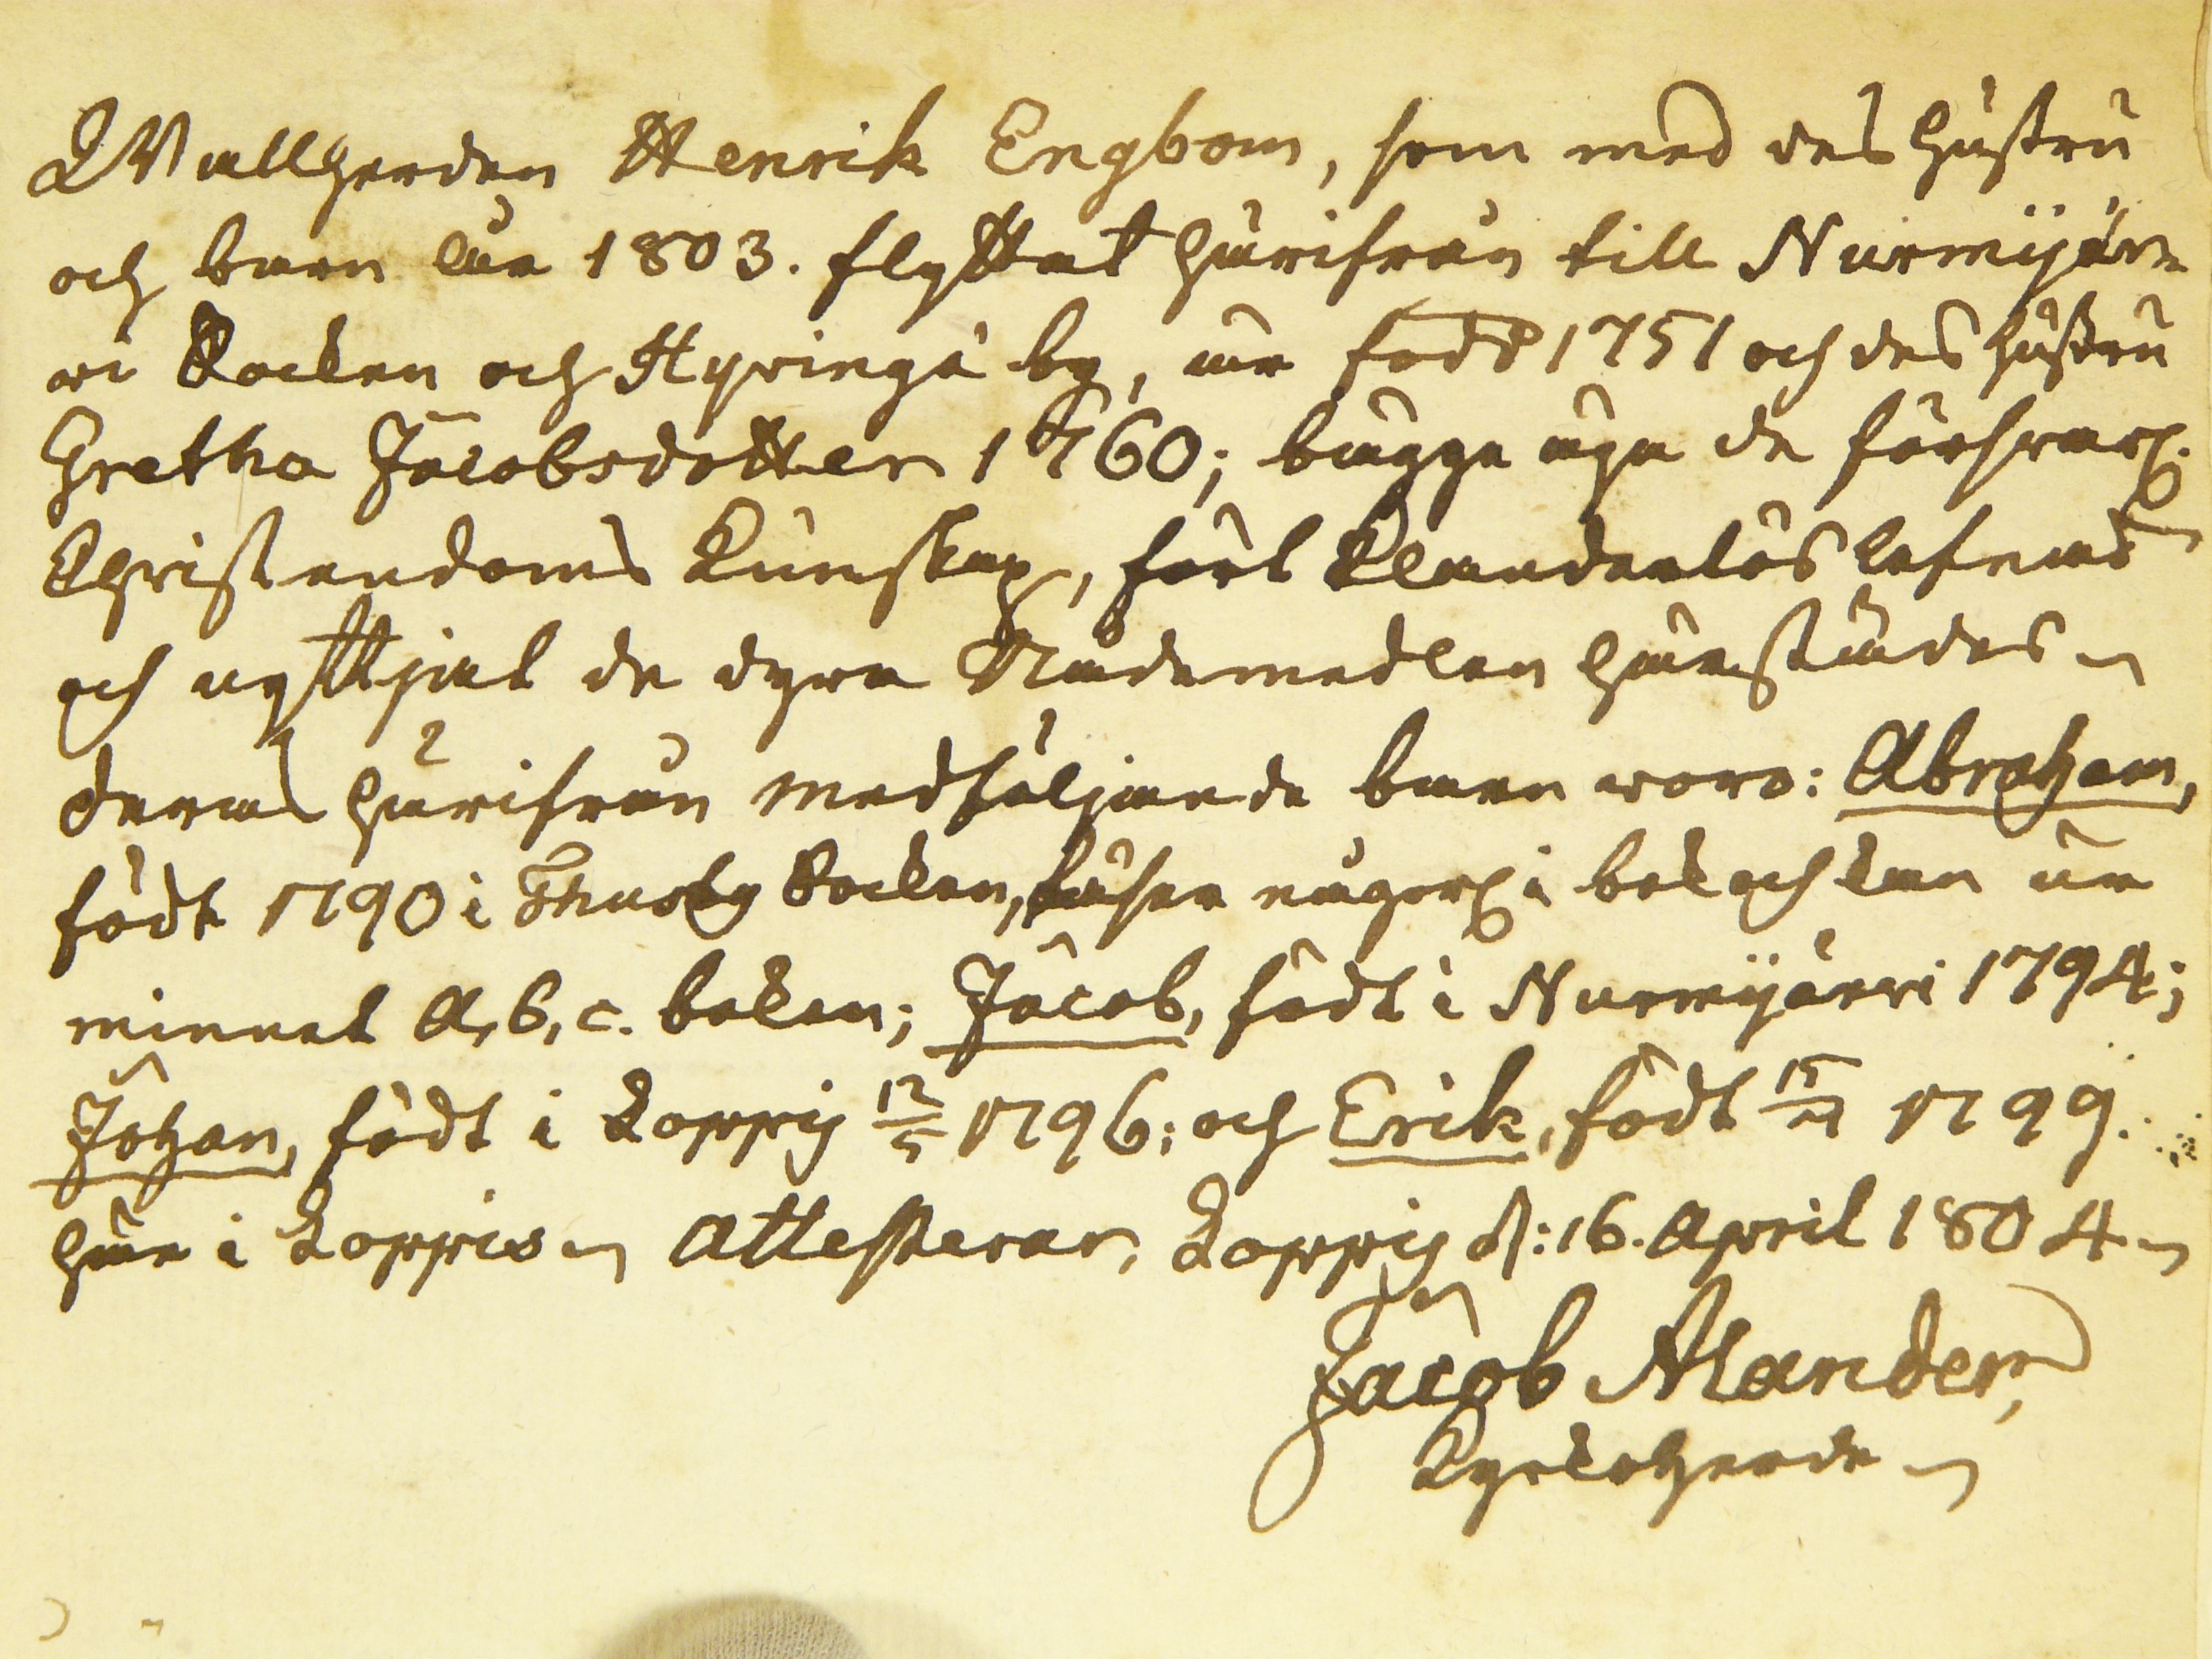 Wallherden Henrik Engbom, som med des hustru
och barn lär 1803. flyttat härifrån till Nurmijär-
wi Socken och Hyvingä by, är född 1751 och des hustru
Gretha Jacobsdotter 1760; bägge äga de försvarl.
Christendoms Kunskap, fört Klanderlös lefnad
och nyttjat de dyra Nådemedlen härstädes
deras härifrån medföljande barn woro: Abraham,
födt 1790 i Thusby Socken, läser någorl. i bok och kan ur
minnet A, b, c. boken; Jacob, födt i Nurmijärvi 1794;
Johan, födt i Loppis 12/5 1796; och Erik, födt 15/7 1799.
här i Loppis Attesterar, Loppis d: 16. April 1804
Jacob Alander,
Kyrkoherde